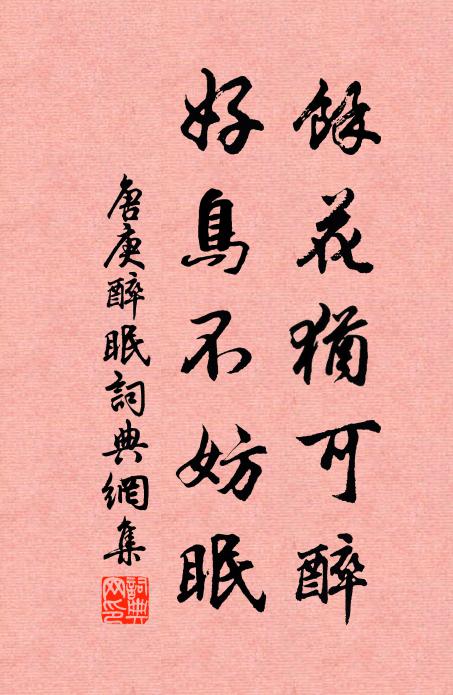 餘花猶可醉
好鳥不妨眠
唐庚醉眠詞典網集
詞典网印